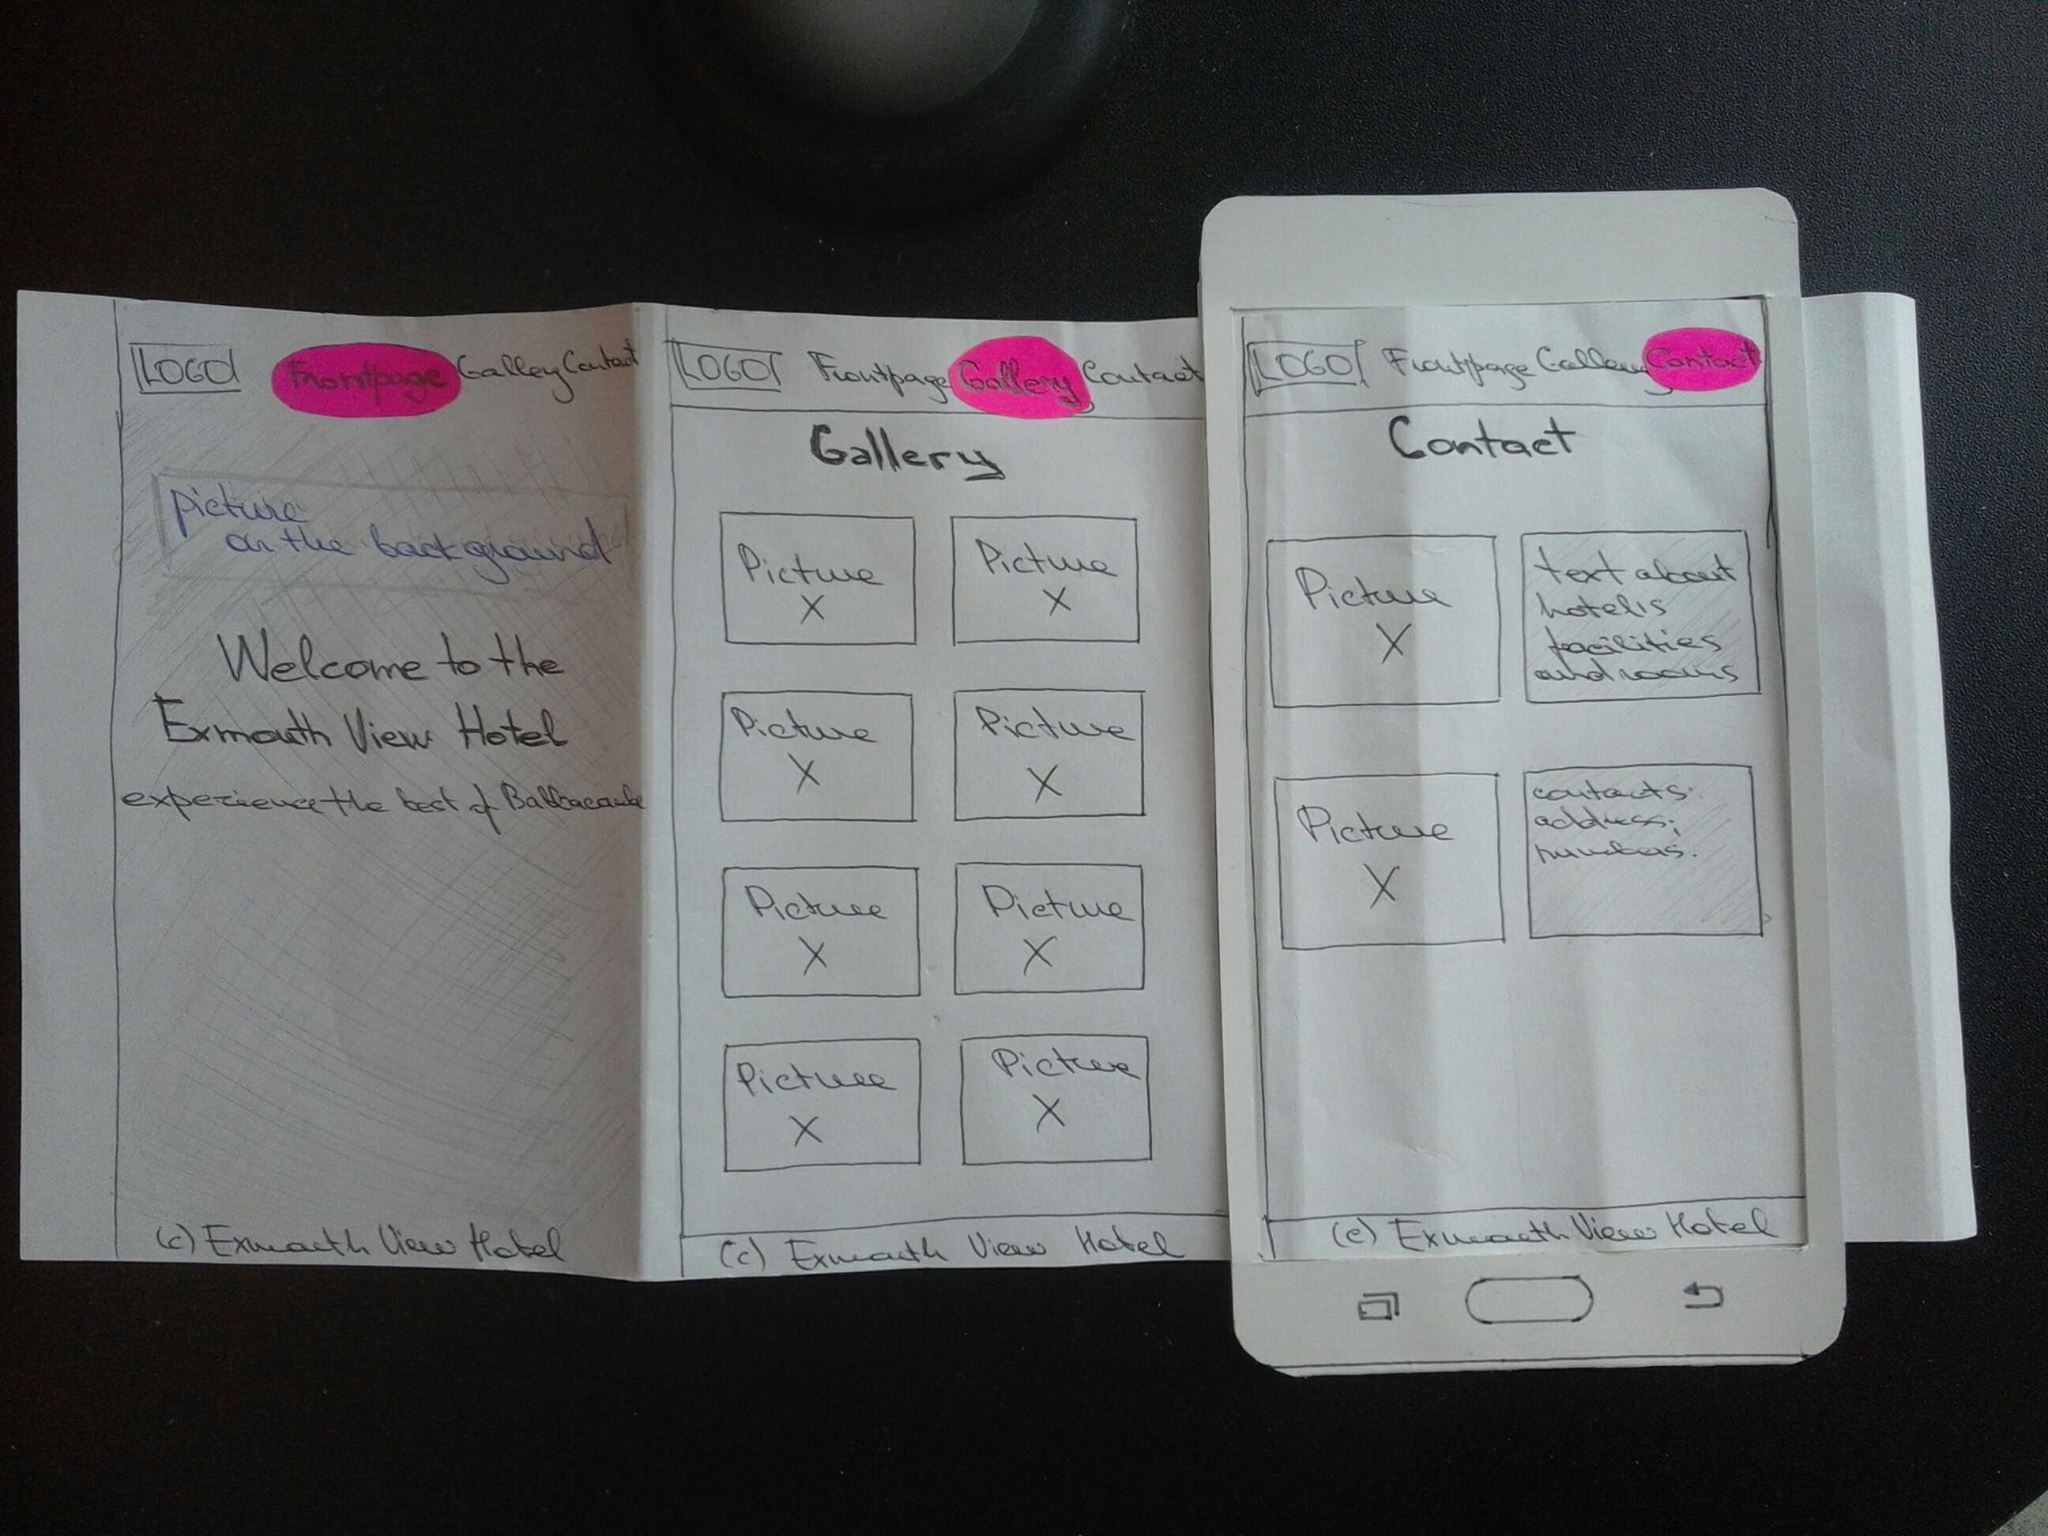 LOGO Frontpage Gallery Contact
picture
on the background
Welcome to the
Exmouth View Hotel
experience the best of Babbacombe
(c) Exmouth View Hotel
LOGO Frontpage Gallery Contact
Gallery
Picture
X
Picture
X
Picture
X
Picture
X
Picture
X
Picture
X
Picture
X
Picture
X
(c) Exmouth View Hotel
LOGO Frontpage Gallery Contact
Contact
Picture
X
text about
hotel's
facilities
and rooms
Picture
X
contacts:
address;
numbers.
(c) Exmouth View Hotel